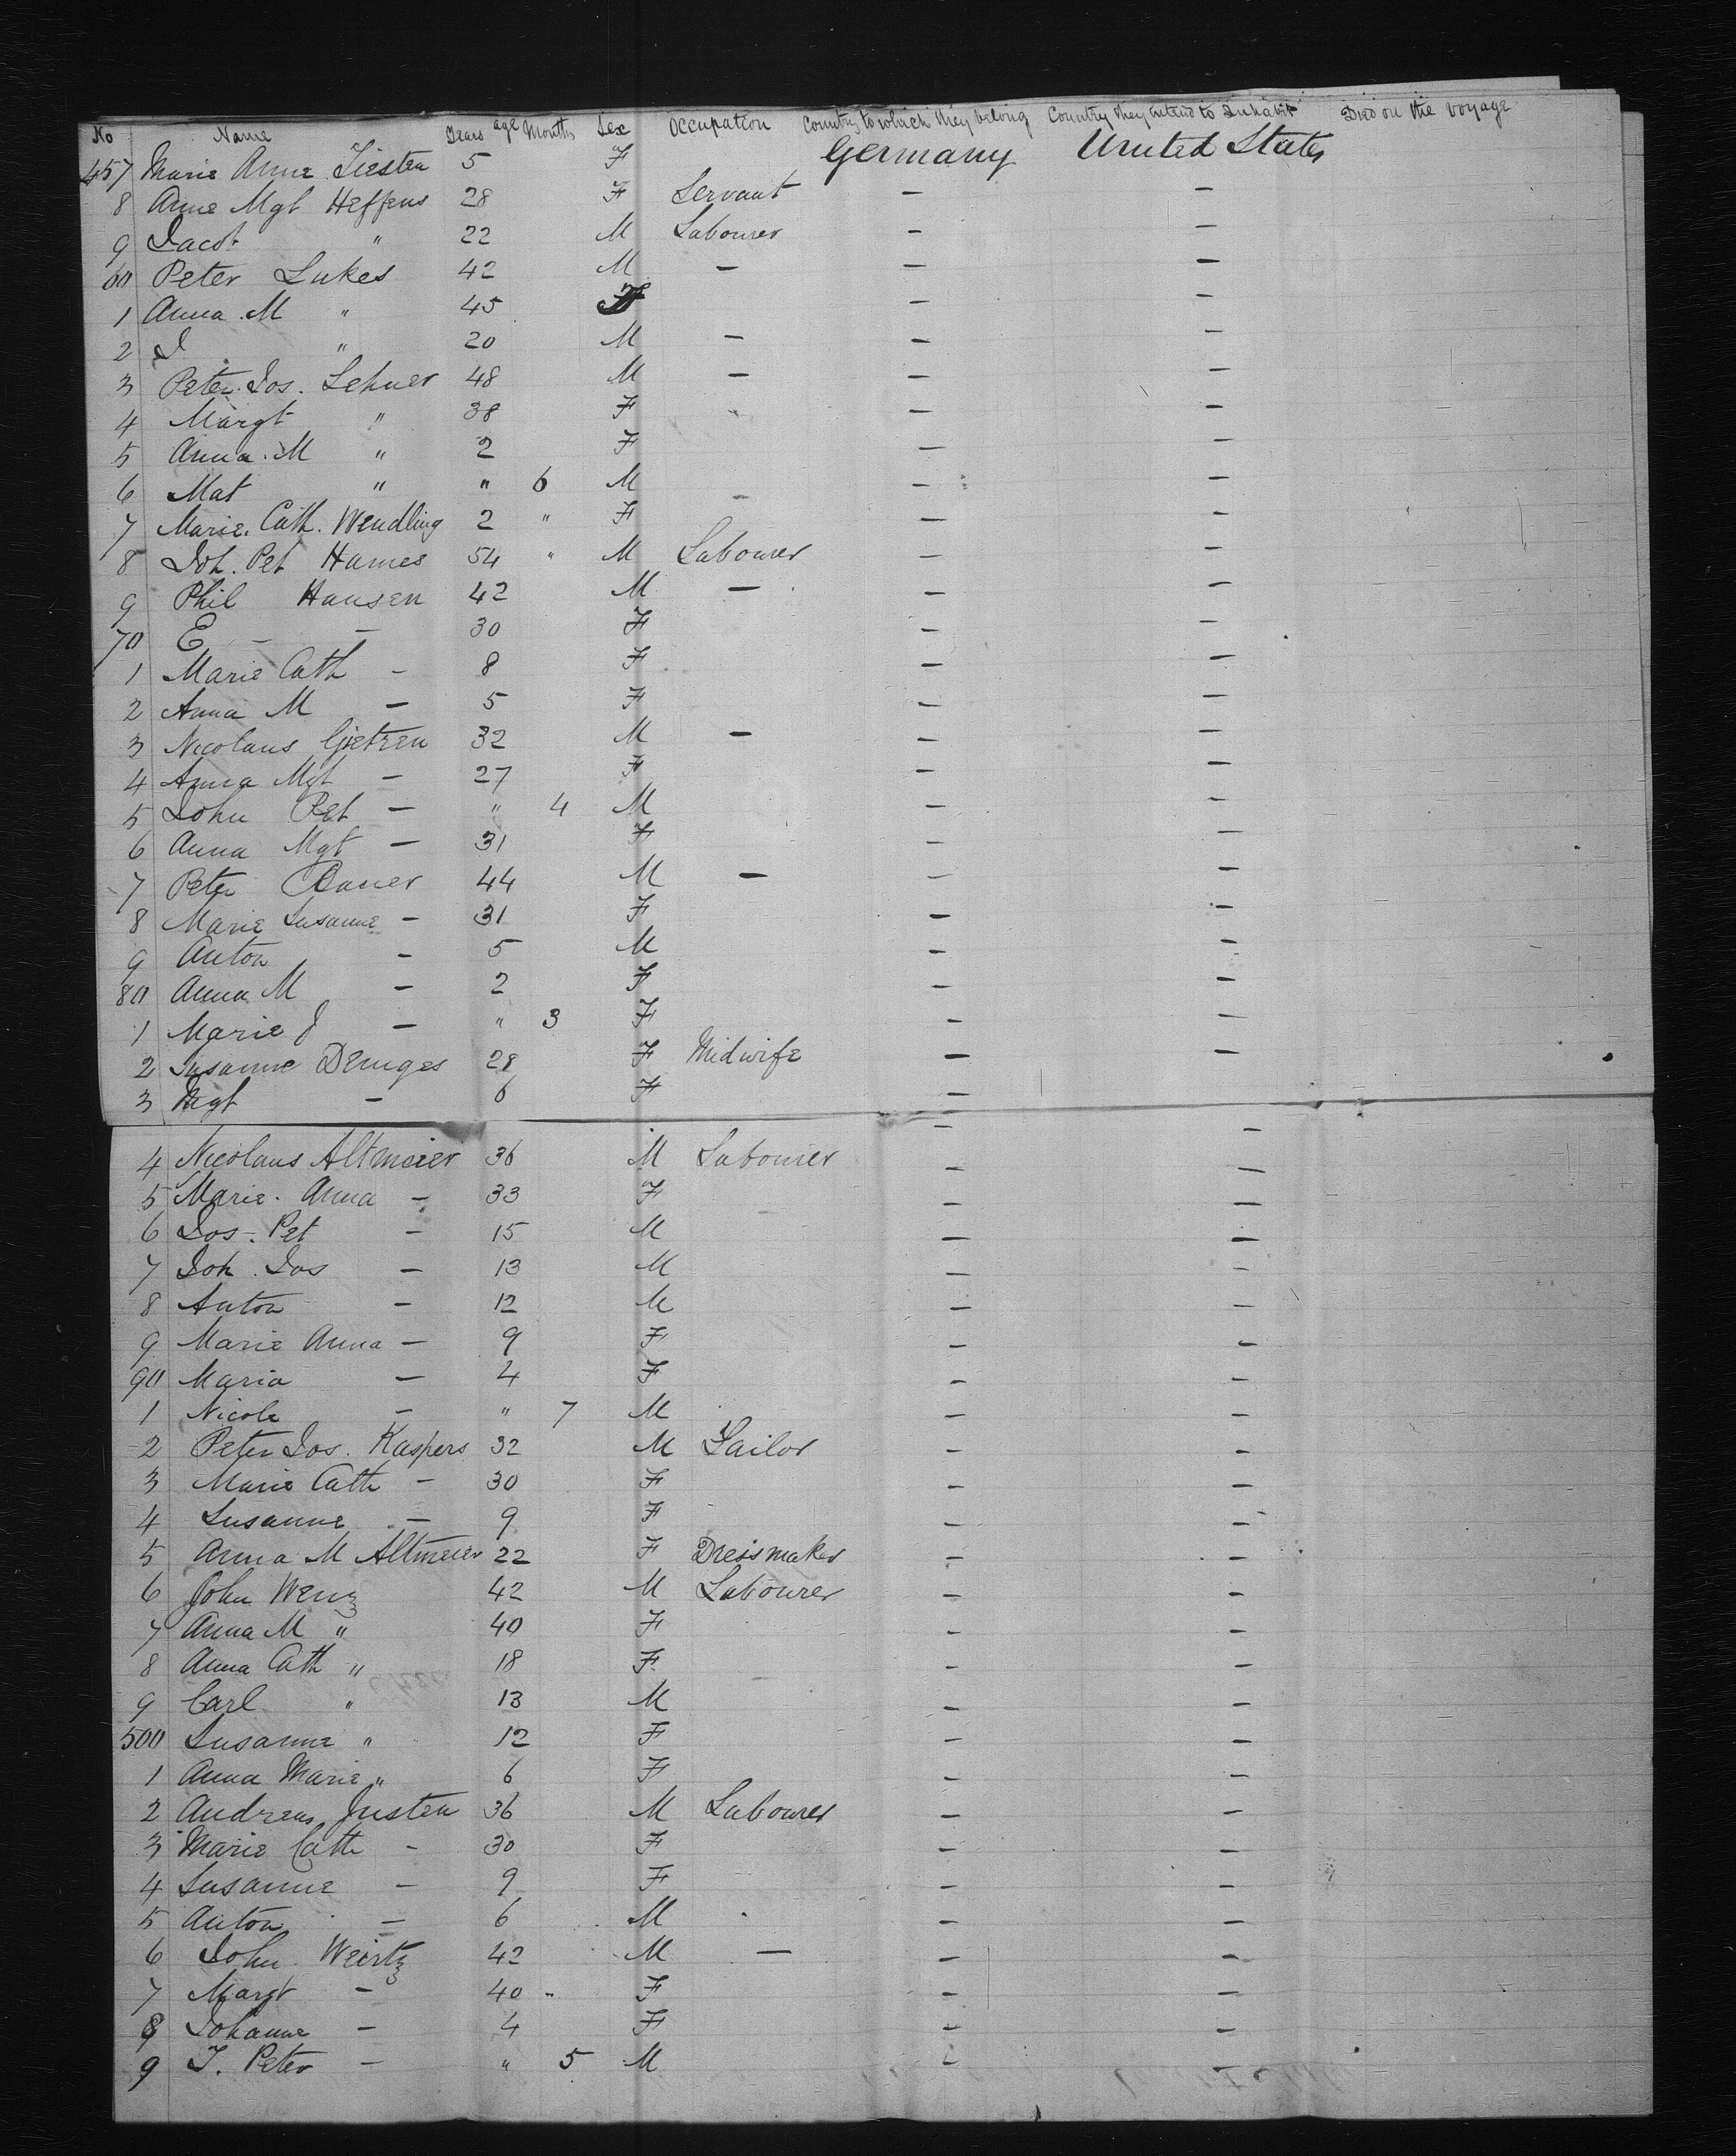 No Name Years age Months Sex Occupation Country to which they belong Country they intend to Inhabit Died on the voyage
457 Marie Anne Tiesten 5 F Germany United States
8 Anne Mgt Heffens 28 F Servant — —
9 Jacob " 22 M Labourer — —
60 Peter Lukes 42 M — — —
1 Anna M " 45 F — —
2 J " 20 M — — —
3 Peter Jos. Lehner 48 M — — —
4 Margt " 38 F — —
5 Anna M " 2 F — —
6 Mat " " 6 M — —
7 Marie Cath. Wendling 2 " F — —
8 Joh. Pet Hames 54 " M Labourer — —
9 Phil Hansen 42 M — — —
70 E — — 30 F — —
1 Marie Cath — 8 F — —
2 Anna M — 5 F — —
3 Nicolaus Goetzen 32 M — — —
4 Anna Mgt — 27 F — —
5 John Pet — " 4 M — —
6 Anna Mgt — 31 F — —
7 Peter Bauer 44 M — — —
8 Marie Susanne — 31 F — —
9 Anton — 5 M — —
80 Anna M — 2 F — —
1 Marie J — " 3 F — —
2 Susanne Dewges 28 F Midwife — —
3 Mgt — 6 F — —
4 Nicolaus Altmeier 36 M Labourer — —
5 Marie Anna — 33 F — —
6 Jos. Pet — 15 M — —
7 Joh. Jos — 13 M — —
8 Anton — 12 M — —
9 Marie Anna — 9 F — —
90 Maria — 4 F — —
1 Nicola — " 7 M — —
2 Peter Jos. Kaspers 32 M Sailor — —
3 Marie Cath — 30 F — —
4 Susanne — 9 F — —
5 Anna M Altmeier 22 F Dressmaker — —
6 John Wenz 42 M Labourer — —
7 Anna M " 40 F — —
8 Anna Cath " 18 F — —
9 Carl " 13 M — —
500 Susanne " 12 F — —
1 Anna Marie " 6 F — —
2 Andreas Justen 36 M Labourer — —
3 Marie Cath — 30 F — —
4 Susanne — 9 F — —
5 Anton — 6 M — —
6 John Weirtz 42 M — — —
7 Margt — 40 " F — —
8 Johanne — 4 F — —
9 J. Peter — " 5 M — —